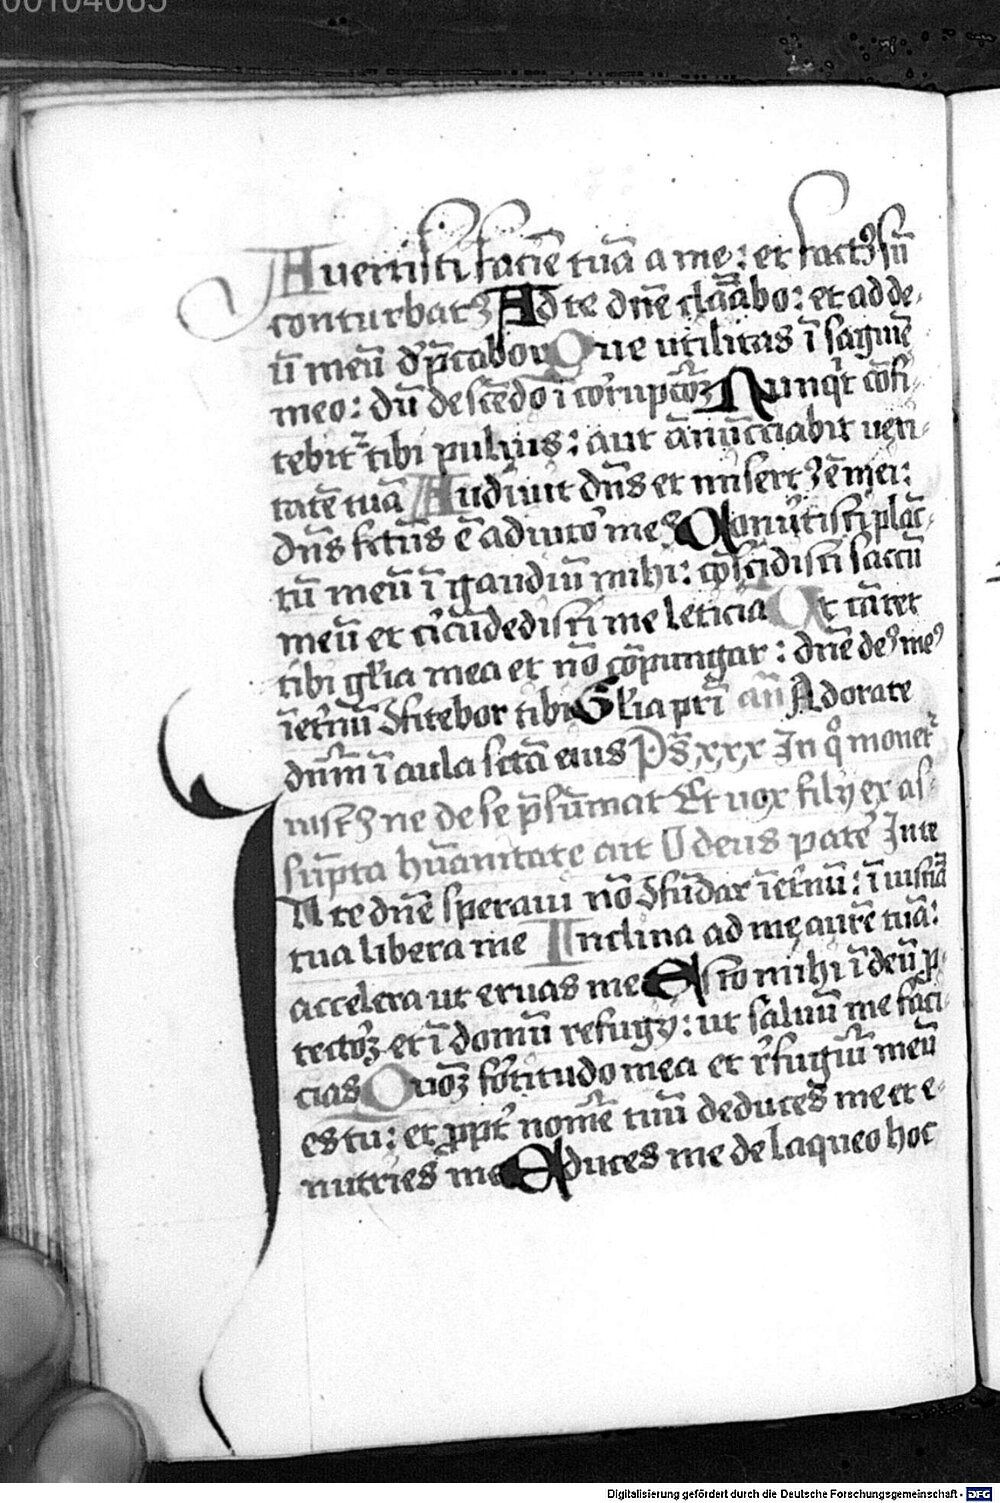 00104065
Auertisti faciē tuā a me: et factꝰ sū
conturbatꝰ Ad te dn̄e clāabo: et ad de-
ū meū dep̄cabor Que utilitas ī sagui͞e
meo: dū descēdo ī corrupc͞oꝫ Nunqͥt cōfi-
tebit᷑ tibi puluis: aut ānūcciabit ueri-
tatē tuā Audiuit dn̄s et misertꝰ ē mei:
dn̄s fctūs ē adiuto᷑ meꝰ Conu᷑tisti plāc-
tū meū ī gaudiū mihi: cōscidisti saccū
meū et cͥcūdedisti me leticia Ut cātet
tibi gl̄ia mea et nō cōpungar: dn̄e deꝰ meꝰ
īet᷑nū ꝯfitebor tibi Gl̄ia pr̄i an̄ Adorate
dn̄m ī aula sctā eius Ps̄ xxx In qͦ monet᷑
iustꝰ ne de se p̄sūmat Et uox filij ex as-
sūpta hūanitate ait O deus pate᷑ Inte
N te dn̄e speraui nō ꝯfūdar īet᷑nū: ī iusticiā
tua libera me Inclina ad me aurē tuā:
accelera ut eruas me Esto mihi ī deū p-
tectoꝫ et ī domū refugij: ut saluū me faci-
cias Quoꝫ fo᷑titudo mea et r᷑fugiū meū
es tu: et ꝓpt᷑ nomē tuū deduces me et e-
nutries me Educes me de laqueo hoc
Digitalisierung gefördert durch die Deutsche Forschungsgemeinschaft - DFG